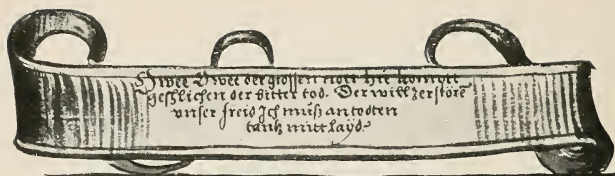 O wee O wee der grossen nott hie kommtt
geschlichen der bitter tod. Der will zerstöre
vnser freid Ich müß an todten
tantz mitt layd